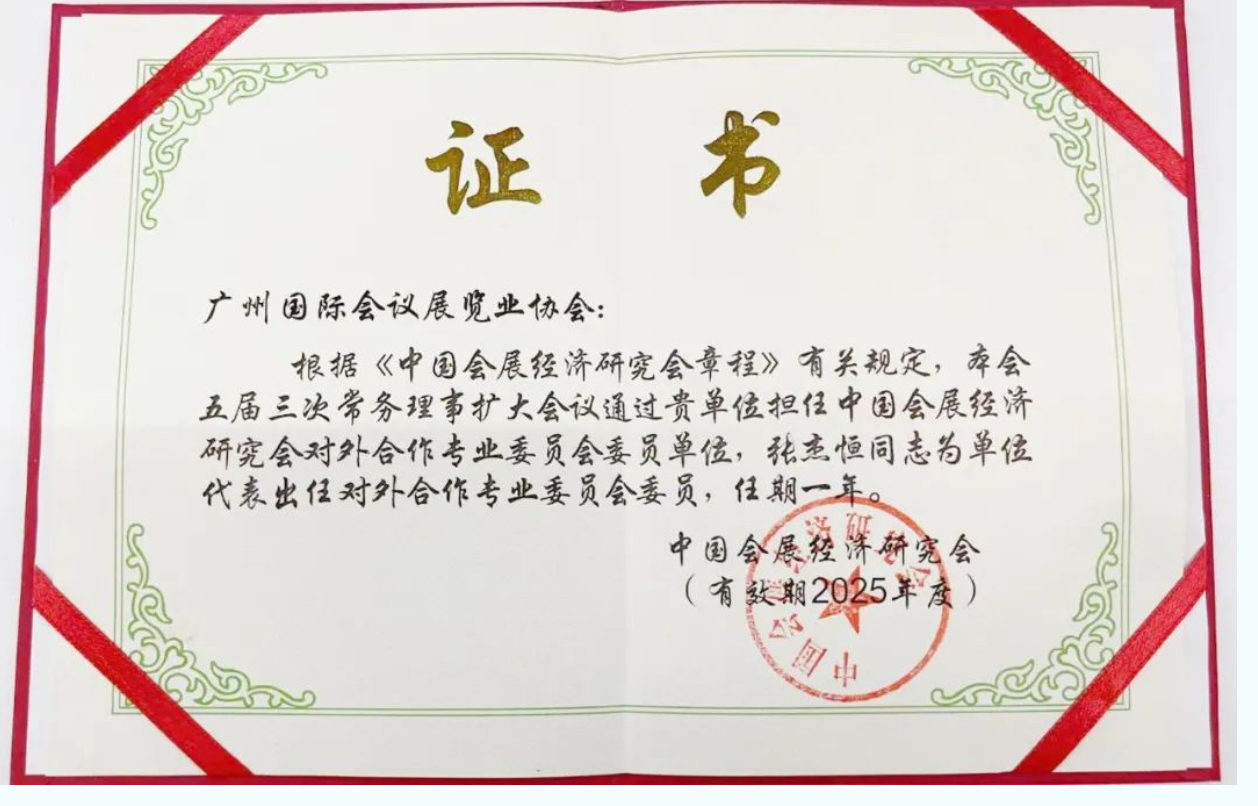 证 书
广州国际会议展览业协会：
根据《中国会展经济研究会章程》有关规定，本会
五届三次常务理事扩大会议通过贵单位担任中国会展经济
研究会对外合作专业委员会委员单位，张杰恒同志为单位
代表出任对外合作专业委员会委员，任期一年。
中国会展经济研究会
（有效期2025年度）
中国会展经济研究会